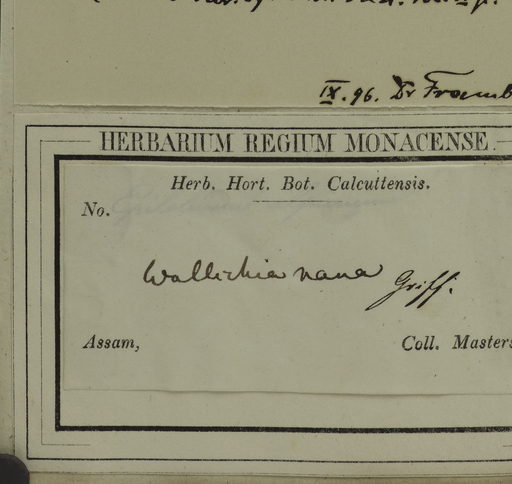 IX. 96. Dr
HERBARIUM REGIUM MONACENSE.
Herb. Hort. Bot. Calcuttensis.
No.
Wallichia nana Griff.
Assam,
Coll. Masters